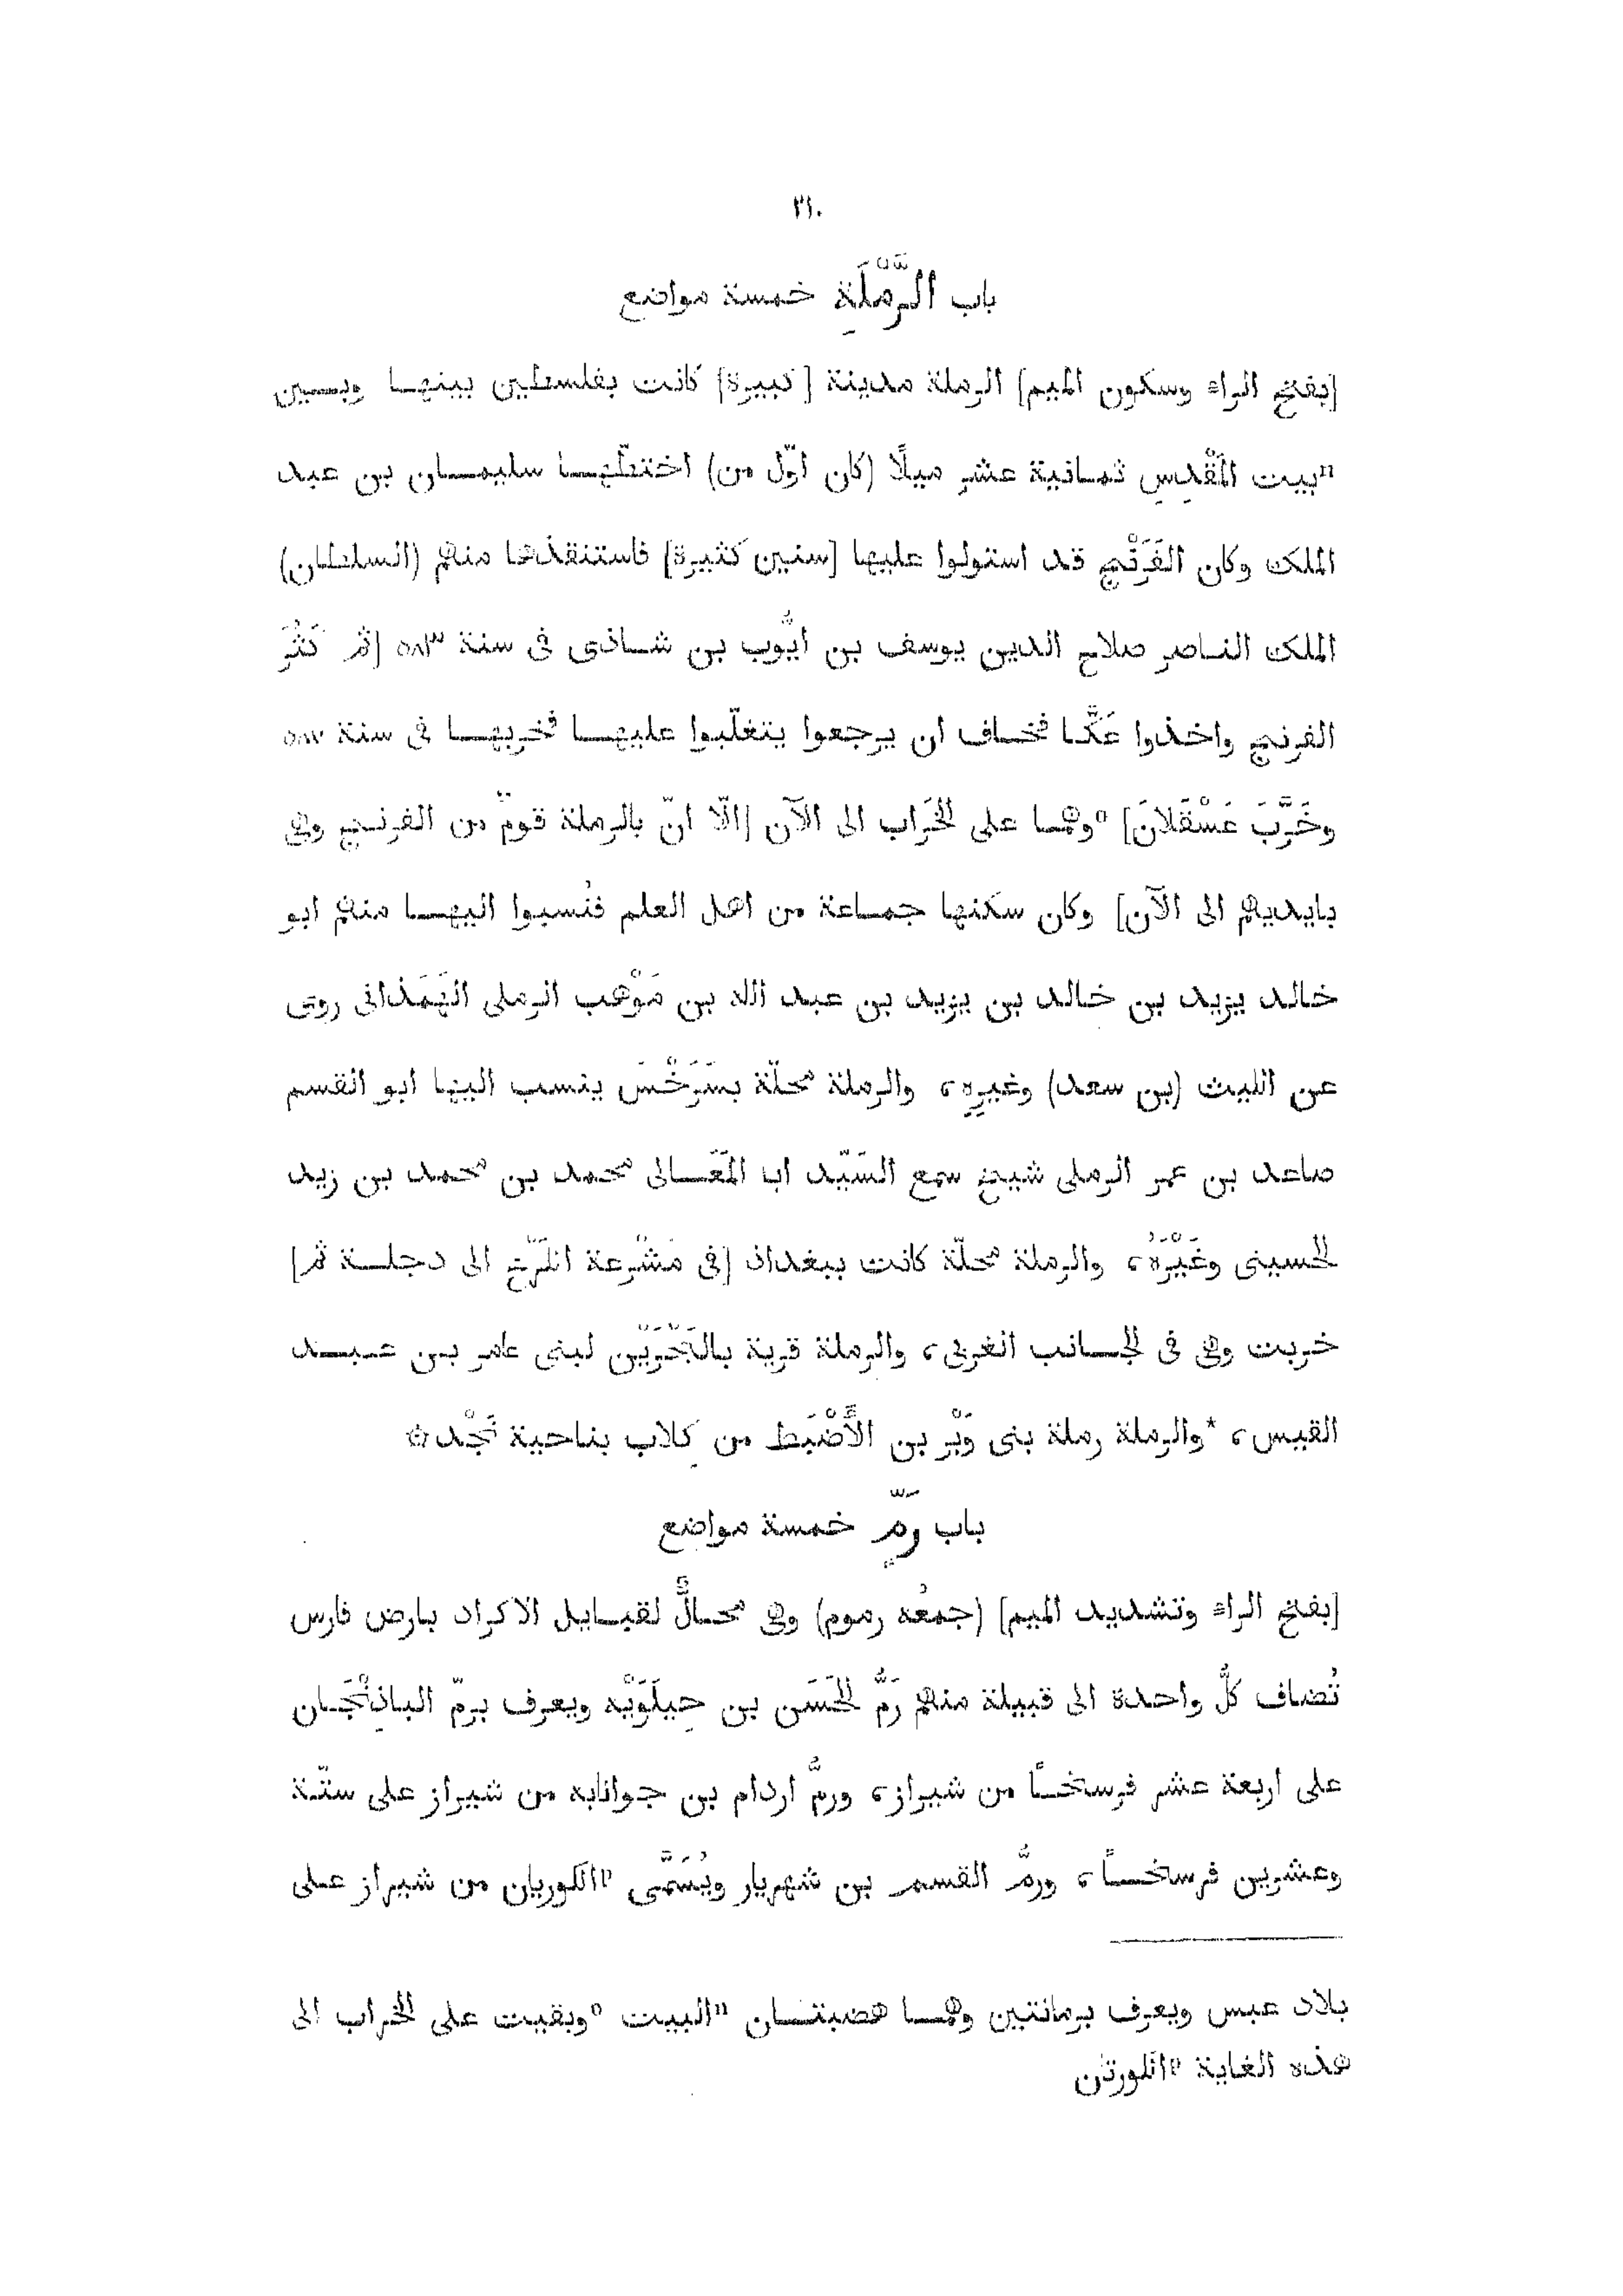 ٢١٠
باب الرَّمْلَةِ خمسة مواضع
[بفتح الراء وسكون الميم] الرملة مدينة [كبيرة] كانت بفلسطين بينها وبين
ⁿبيت المَقْدِسِ ثمانية عشر ميلًا (كان اوّل من) اختطّها سليمان بن عبد
الملك وكان الفَرَنْج قد استولوا عليها [سنين كثيرة] فاستنقذها منهم (السلطان)
الملك الناصر صلاح الدين يوسف بن ايُّوب بن شاذى فى سنة ٥٨٣ [ثم كَثُرَ
الفرنج واخذوا عَكَّا فخاف ان يرجعوا يتغلّبوا عليها فخربها فى سنة ٥٨٧
وخَرَّبَ عَسْقَلَانَ] ᵒوهما على الخَراب الى الآن [الّا انّ بالرملة قومٌ من الفرنج وهى
بايديهم الى الآن] وكان سكنها جماعة من اهل العلم فنُسبوا اليها منهم ابو
خالد يزيد بن خالد بن يزيد بن عبد الله بن مَوْهب الرملى الهَمَذانى روى
عن الليث (بن سعد) وغيرِهِ، والرملة محلّة بسَرَخْسَ ينسب اليها ابو القسم
صاعد بن عمر الرملى شيخ سمع السَيّد ابا المَعَالى محمد بن محمد بن زيد
الحسينى وغَيْرَهُ، والرملة محلّة كانت ببغداذ [فى مَشْرعة الكَرْخ الى دجلة ثم]
خربت وهى فى الجانب الغربى، والرملة قرية بالبَحْرَيْن لبنى عامر بن عبد
القيس، *والرملة رملة بنى وَبْر بن الأَضْبَط من كِلاب بناحية نَجْد۞
باب رَمّ خمسة مواضع
[بفتح الراء وتشديد الميم] (جمعُه رموم) وهى محالٌّ لقبايل الاكراد بارض فارس
تُضاف كلُّ واحدة الى قبيلة منهم رَمُّ الحَسَن بن جِيلَوَيْه ويعرف برمّ الباذِنْجَان
على اربعة عشر فرسخًا من شيراز، ورمُّ اردام بن جوانابه من شيراز على ستّة
وعشرين فرسخًا، ورمُّ القسم بن شهريار ويُسَمَّى ᵖالكوريان من شيراز على
بلاد عبس ويعرف برمانتين وهما هضبتان ⁿالبيت ᵒوبقيت على الخراب الى
هذه الغاية ᵖاللورتن